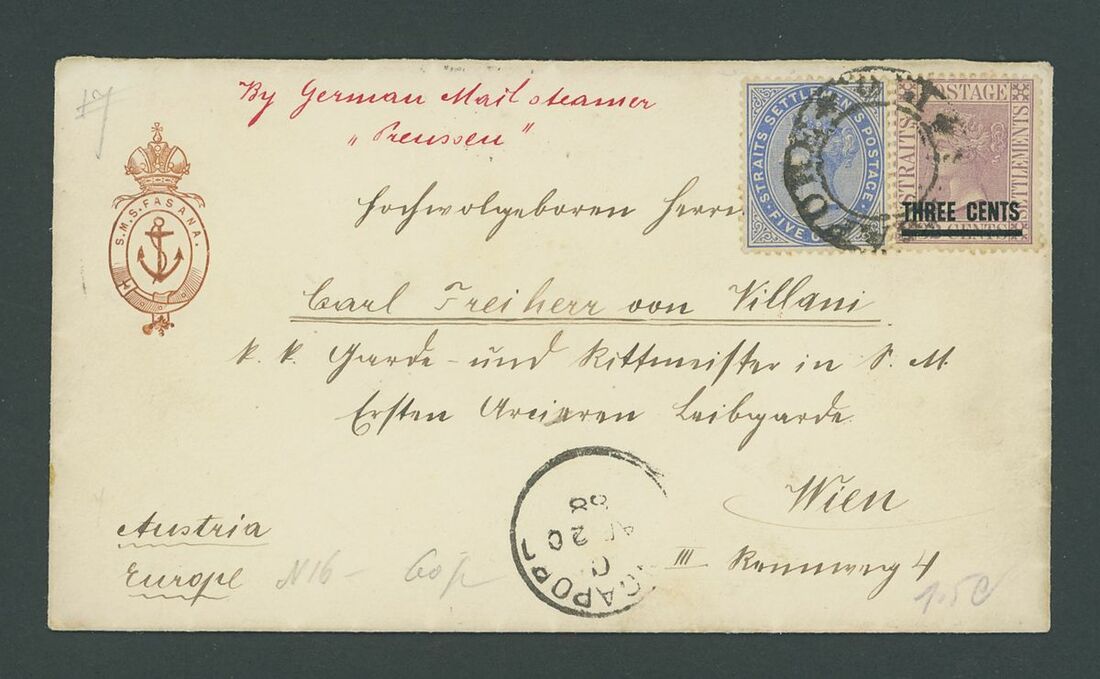 By German Mail steamer
"Preussen"
S.M.S. FASANA.
STRAITS SETTLEMENTS POSTAGE.
FIVE
POSTAGE
STRAITS
SETTLEMENTS
THREE CENTS
CENTS
Hochwolgeboren Herrn
Carl Freiherr von Villani
k. k. Garde- und Rittmeister in S. M.
Ersten Arcieren Leibgarde
Wien
III Rennweg 4
Austria
Europe
N16 -
GAPORE
20
88